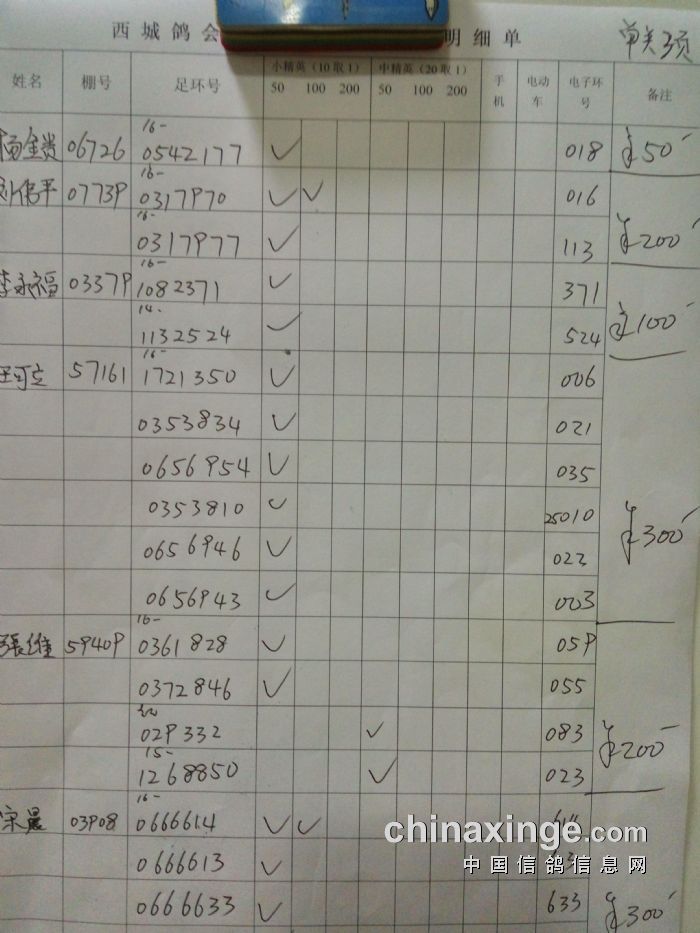 西城鸽会 明细单 单关3项
姓名 棚号 足环号 小精英（10取1） 50 100 200 中精英（20取1） 50 100 200 手机 电动车 电子环号 备注
杨金贵 06726 16- 0542177 ✓ 018 ¥50
伟平 07739 16- 0317970 ✓ ✓ 016
16- 0317977 ✓ 113 ¥200
李永福 03379 16- 1082371 ✓ 371
14- 1132524 ✓ 524 ¥100
王可立 57161 16- 1721350 ✓ 006
0353834 ✓ 021
0656954 ✓ 035
0353810 ✓ 25010 ¥300
0656946 ✓ 023
0656943 ✓ 003
张维 59409 16- 0361828 ✓ 059
0372846 ✓ 055
029332 ✓ 083 ¥200
15- 1268850 ✓ 023
宋晨 03908 16- 0666614 ✓ ✓
0666613 ✓
0666633 ✓ 633 ¥300
chinaxinge.com
中国信鸽信息网